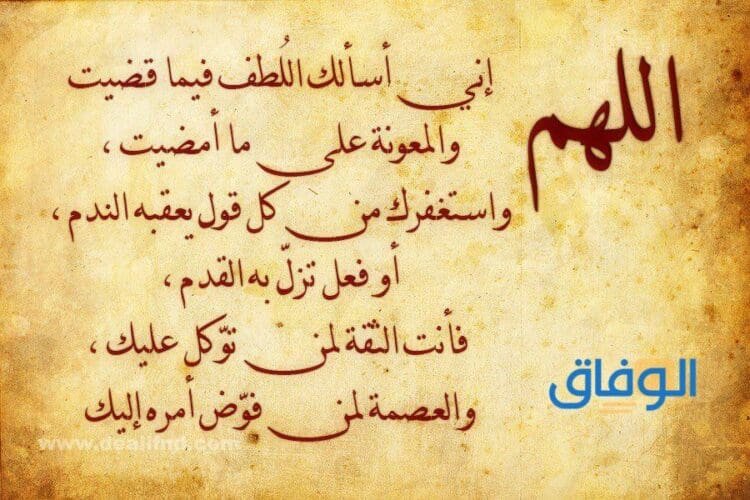 اللهم
إني أسألك اللُطف فيما قضيت
والمعونة على ما أمضيت ،
واستغفرك من كل قول يعقبه الندم ،
أو فعل تزلّ به القدم ،
فأنت الثقة لمن توّكل عليك ،
والعصمة لمن فوّض أمره إليك
الوفاق